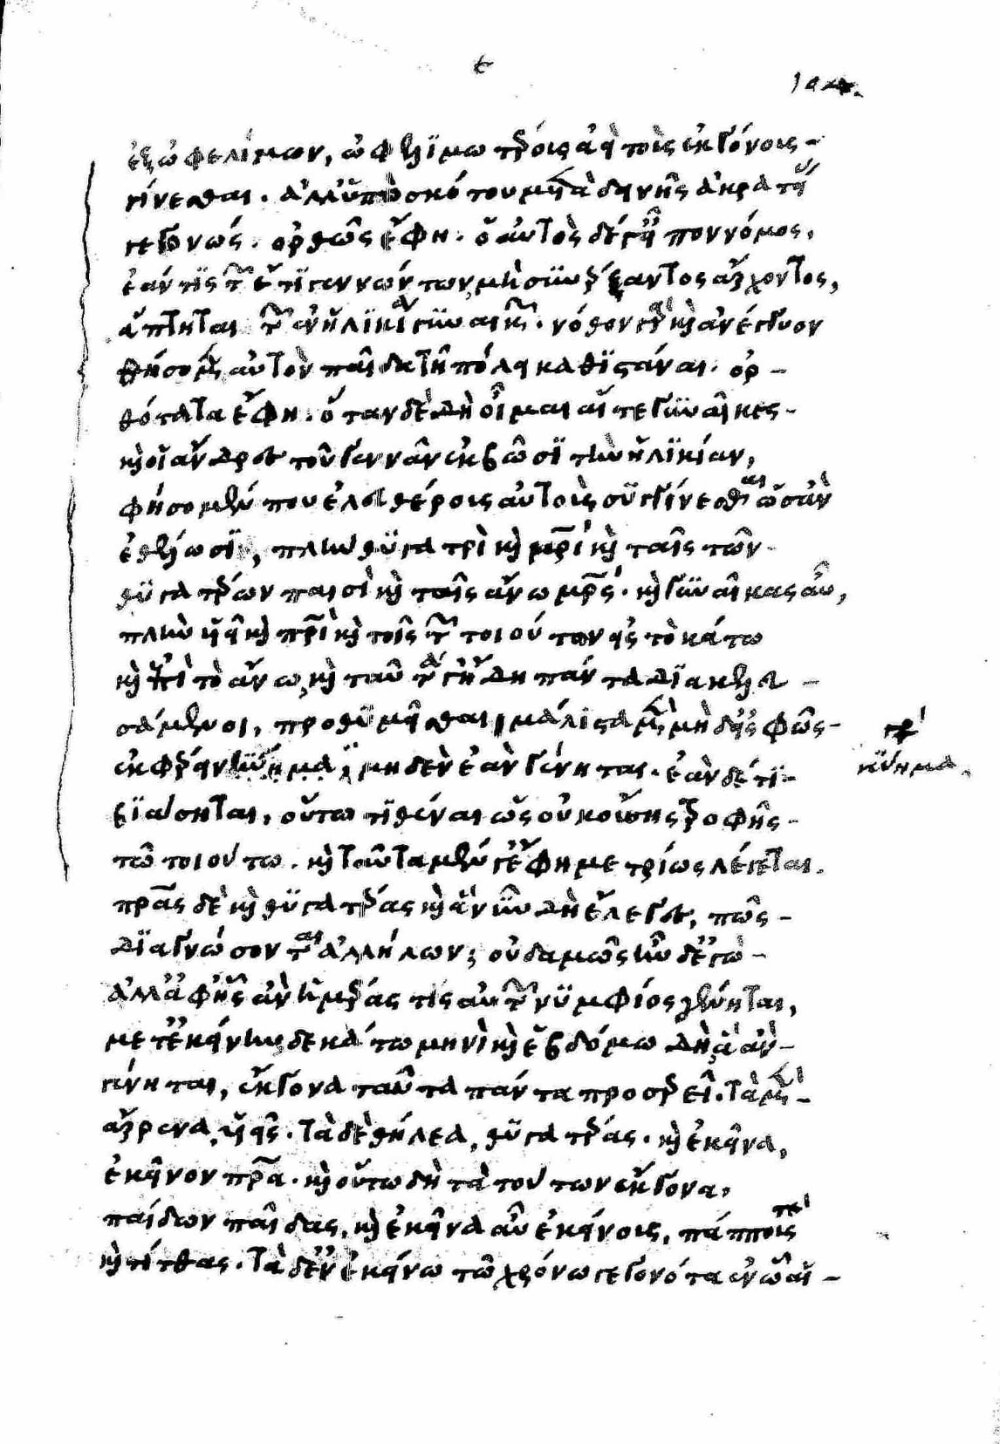 ε
104.
ἐξ ὠφελίμων, ὠφελιμωτέρους ἀεὶ τοὺς ἐκγόνους
γίνεσθαι. ἀλλ' ὑπὸ σκότου μετὰ δεινῆς ἀκρατείας
γεγονώς. ὀρθῶς ἔφη. ὁ αὐτὸς δέ γ' εἶπον νόμος,
ἐάν τις τῶν ἔτι γεννώντων μὴ συνέρξαντος ἄρχοντος,
ἅπτηται τῶν ἐν ἡλικίᾳ γυναικῶν. νόθον γὰρ καὶ ἀνέγγυον
θήσομεν αὐτὸν παῖδα τῇ πόλει καθιστάναι. ὀρ-
θότατα ἔφη. ὅταν δὲ δὴ οἶμαι αἵ τε γυναῖκες
καὶ οἱ ἄνδρες τοῦ γεννᾶν ἐκβῶσι τὴν ἡλικίαν,
φήσομέν που ἐλευθέρους αὐτοὺς συγγίνεσθαι ᾧ ἂν
ἐθέλωσι, πλὴν θυγατρὶ καὶ μητρὶ καὶ ταῖς τῶν
θυγατέρων παισὶ καὶ ταῖς ἄνω μητρός. καὶ γυναῖκας αὖ,
πλὴν υἱεῖ καὶ πατρὶ καὶ τοῖς τούτων εἰς τὸ κάτω
καὶ ἐπὶ τὸ ἄνω, καὶ ταῦτά γ' ἤδη πάντα διακελευ-
σάμενοι, προθυμεῖσθαι μάλιστα μὲν μηδ' εἰς φῶς
ἐκφέρειν κύημα μηδὲν ἐὰν γένηται. ἐὰν δέ τι
γρ κύημα.
βιάσηται, οὕτω τιθέναι ὡς οὐκ οὔσης τροφῆς
τῷ τοιούτῳ. καὶ ταῦτα μέν γ' ἔφη μετρίως λέγεται.
πατέρας δὲ καὶ θυγατέρας καὶ ἃ νῦν δὴ ἔλεγες, πῶς
διαγνώσονται ἀλλήλων; οὐδαμῶς ἦν δ' ἐγώ
ἀλλ' ἀφ' ἧς ἂν ἡμέρας τις αὐτῶν νυμφίος γένηται,
μετ' ἐκείνην δεκάτῳ μηνὶ καὶ ἑβδόμῳ δὴ ἃ ἂν
γένηται, ἔκγονα ταῦτα πάντα προσερεῖ. τὰ μὲν
ἄρρενα, υἱεῖς. τὰ δὲ θήλεα, θυγατέρας. καὶ ἐκεῖνα,
ἐκεῖνον πατέρα. καὶ οὕτω δὴ τὰ τούτων ἔκγονα,
παίδων παῖδας, καὶ ἐκεῖνα αὖ ἐκείνους, πάππους τε
καὶ τίτθας. τὰ δ' ἐν ἐκείνῳ τῷ χρόνῳ γεγονότα ἐν ᾧ αἱ